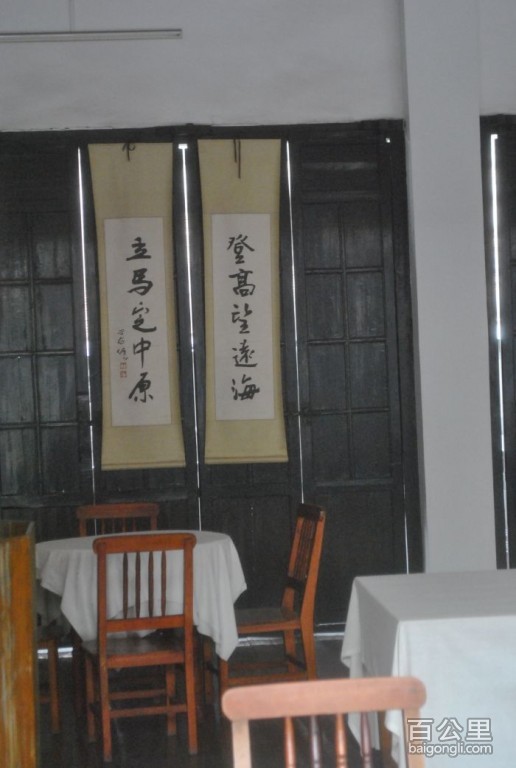 登高望遠海
立馬定中原
百公里
baigongli.com